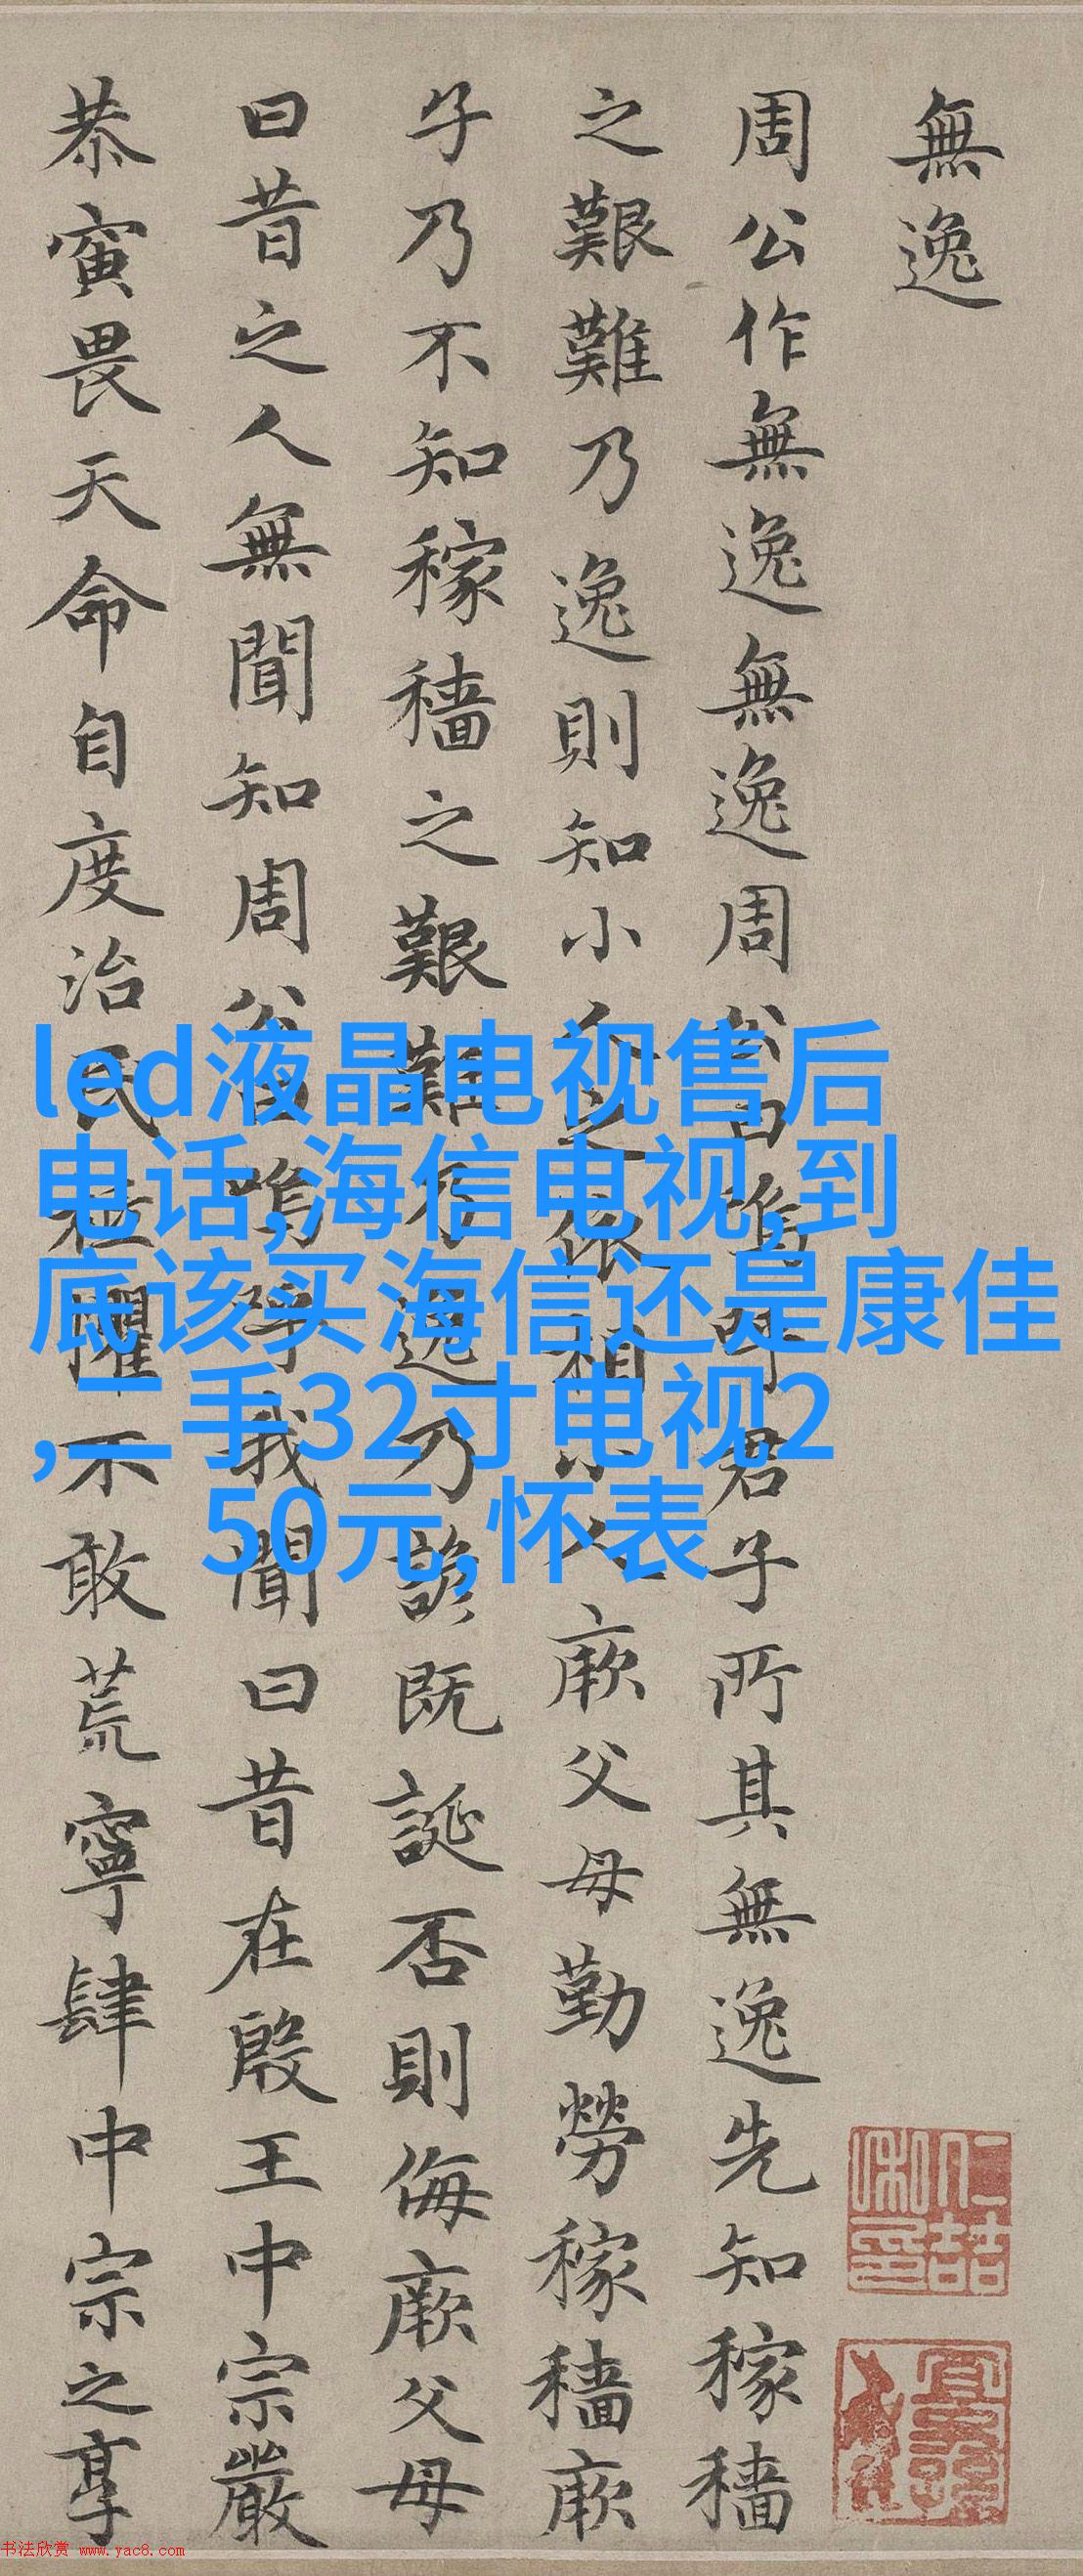 無逸
周公作無逸無逸周公曰嗚呼君子所其無逸先知稼穡
之艱難乃逸則知小人之依相小人厥父母勤勞稼穡厥
子乃不知稼穡之艱難乃逸乃諺既誕否則侮厥父母
曰昔之人無聞知周公曰嗚呼我聞曰昔在殷王中宗嚴
恭寅畏天命自度治民祗懼不敢荒寧肆中宗之享
led液晶电视售后
电话,海信电视,到
底该买海信还是康佳
,二手32寸电视2
50元,怀表
书法欣赏 www.yac8.com